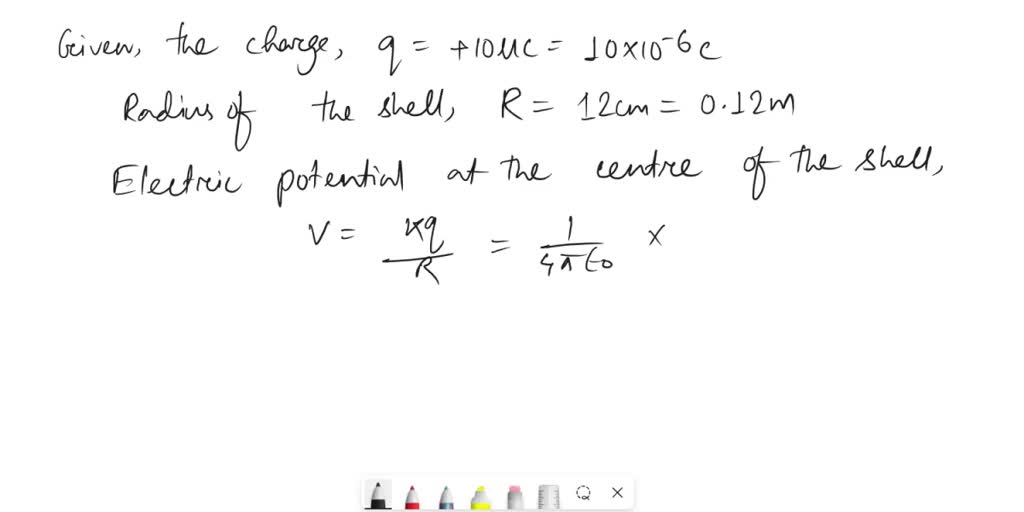 Given, the charge, q = +10μc = 10×10⁻⁶c
Radius of the shell, R = 12cm = 0.12m
Electric potential at the centre of the shell,
V = kq/R = 1/4πε₀ ×